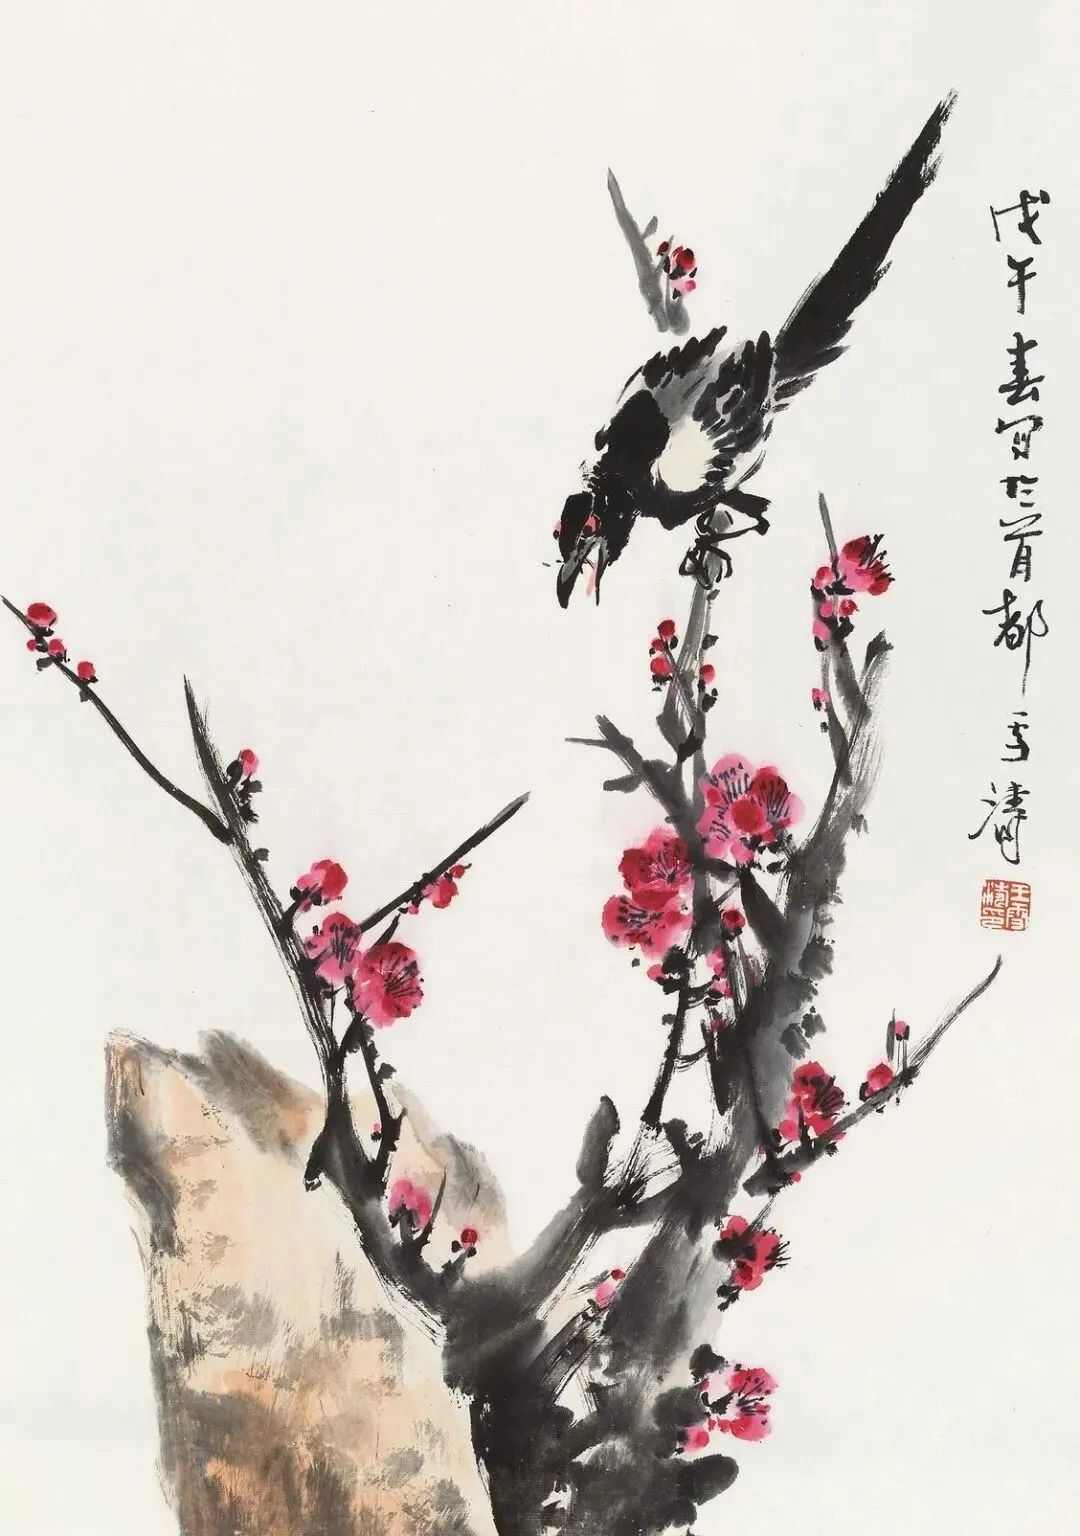 戊午春写于首都雪涛
王雪涛印